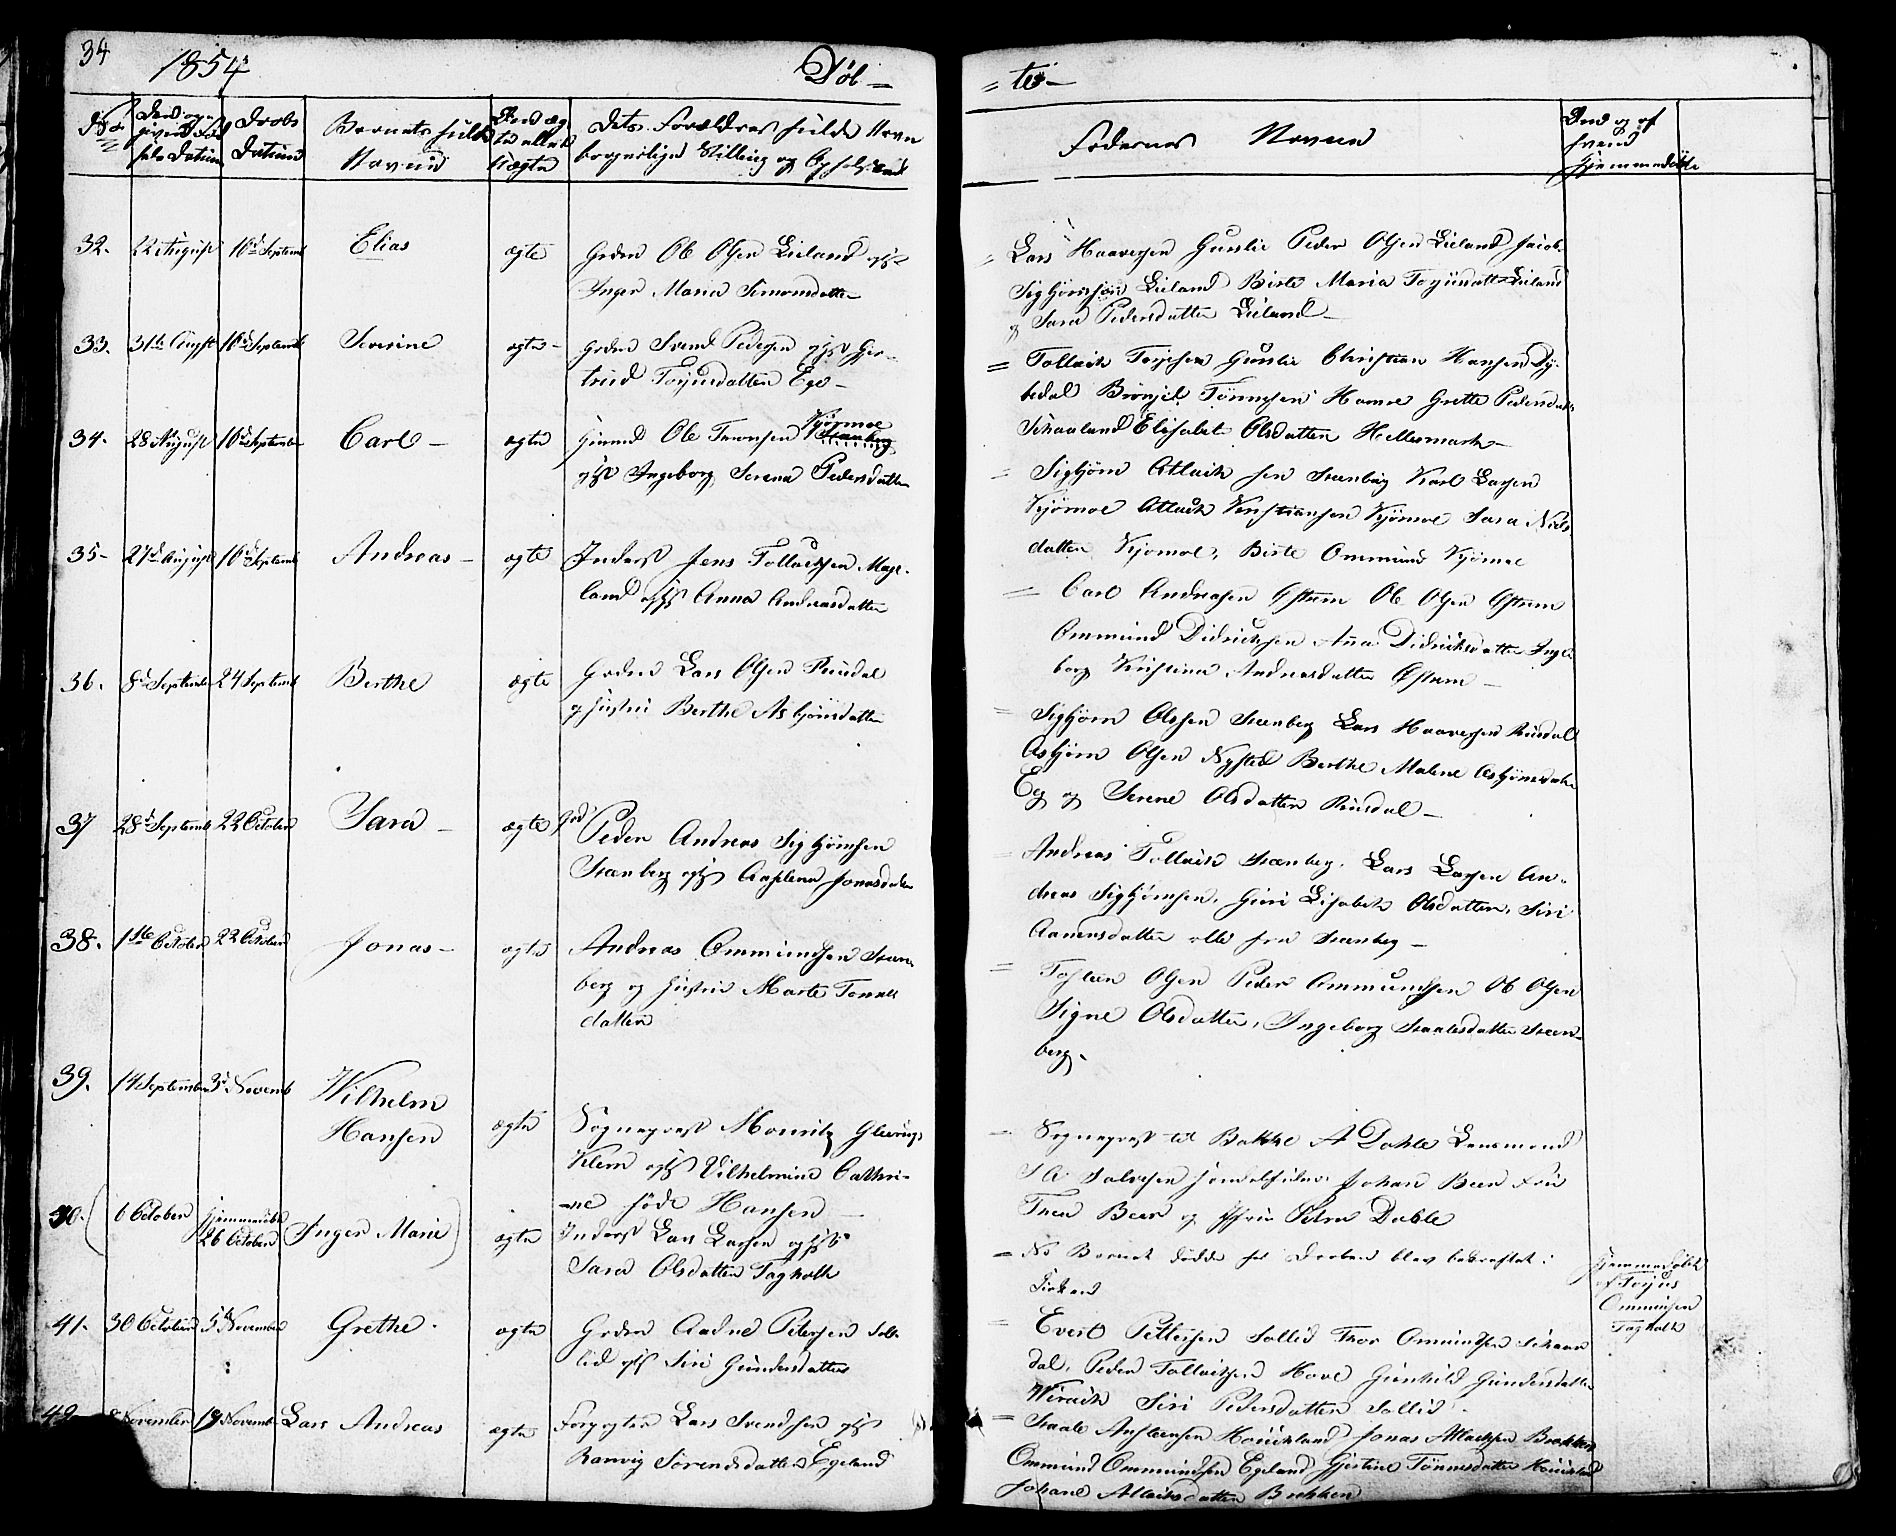 34
1854
Døb-
= te-
No
Daabs
Datum
Barnets fulde
Navne
Dets Forældres fulde Navn
borgerlige Stilling og Opholdssted
Fadernes Navne
32. 22 August 10d Septemb Elias ægte Grdm Ole Olsen Lieland og H
Inger Maria Simonsdatter
Lars Haaversen Gusslie Peder Olsen Lieland Jacob
Sigbjørnsen Lieland Birte Maria Torjusdatter Lieland
og Sara Pedersdatter Lieland
33. 31te August 10d Septemb Severine ægte Grdm Svend Pedersen og H Ger-
trud Torjusdatter Ege
Tollack Torjesen Gusslie Christian Hansen Dy-
bedal Brynjel Tønnesen Hamre Grette Pedersdatt
Skaaland Elisabet Olsdatter Hellermark
34. 28 August 10d September Carl ægte Ole Tronsen Kjørmoe
og H Ingeborg Serena Pedersdatter
Sigbjørn Atlack sen Steenberg Karl Larsen
Kjørmoe Atlack Kristiansen Kjørmoe Sara Niels
datter Kjørmoe, Birte Ommund Kjørmoe
35- 27d August 10d Septemb Andreas ægte Inderst Jens Tollacksen Mage-
land og H Anna Andreasdatter
Carl Andreasen Ystrem Ole Olsen Ystrem
Ommund Didricksen Anna Didricksdatter Inge
borg Kristine Andreasdatter Ystrem
36. 8d September 24 Septemb Berthe ægte Grdm Lars Olsen Ruisdal
og Hustru Berthe Asbjørnsdatter
Sigbjørn Olssen Steenberg Lars Haaversen Ruisdal
Asbjørn Olsen Nysted Berthe Malene Asbjørnsdatter
Eeg og Serene Olsdatter Ruisdal
37 28d Septemb 22 October Sara ægte Peder Andreas Sigbjørnsen
Steenberg og H Jonasdatter
Andreas Tollack Steenberg, Lars Larsen An-
dreas Sigbjørnsen, Guri Lisabeth Olsdatter, Siri
Aanensdatter alle fra Steenberg
38. 1ste October 22 October Jonas ægte Andreas Ommundsen Steen
berg og Hustru Marte Tonnes
datter
Olsen Peder Ommundsen Ole Olsen
Signe Olsdatter, Ingeborg Staalesdatter Steen-
berg.
39. 14 September 3d Novemb Wilhelm
Hansen ægte Sognepræst Mouritz Glærup
Klem og H Vilhelmine Cathri-
ne Føde Hansen
Sognepræst til Bakke A Dahle Lensmand
Salvesen Handelsfuldm. Johan Beer Fru
Thea Beer og Petra Dahle
40. 6 October Hjemmedøbt
26 October Inger Marie ægte Inderst Lars Larsen og H
Sara Olsdatter Tagholt
NB Barnet døde før Daaben blev bekræftet i
Kirken
Hjemmedøbt
af Torjus
Ommundsen
Tagholt
41. 30 October 5d November Grethe. ægte Grdm Aadne Petersen Sol-
lid og H Siri Gundersdatter
Evert Pettersen Sollid Thor Ommundsen Skaan
dal, Peder Tollacksen Hove Gunhild Gundersdatter
Wirack Siri Pedersdatter Sollid
42 8 November 19 Novemb Lars Andreas ægte Forpagter Lars Svendsen og H
Ranvig Sørensdatter Egeland
Staale Anstensen Houckland Jonas Atlacksen Brekken
Ommund Ommundsen Egeland Gjertine Tønnesdatter Houckland
Johane Atlacksdatter Brekken